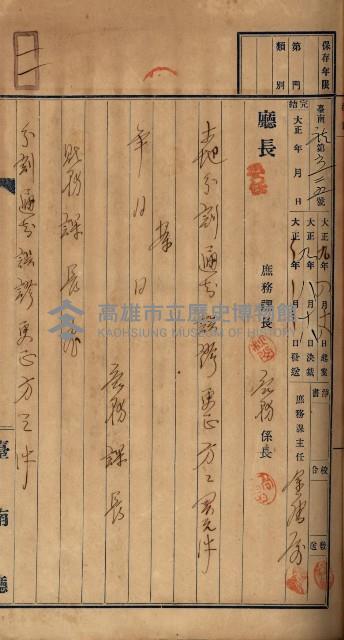 保存年限
第 門
類 別
臺南 第 號
完結 大正 年 月 日
大正九年八月十八日起案
大正九年八月十八日決裁
大正九年八月 日發送
淨書
校合
發送
庶務課主任
廳長
庶務課長
庶務係長
土地分割通知誤謬更正方ニ関スル件
案
年 月 日
庶務課長
財務課長宛
分割通知誤謬更正方ノ件
臺南廳
高雄市立歷史博物館
KAOHSIUNG MUSEUM OF HISTORY